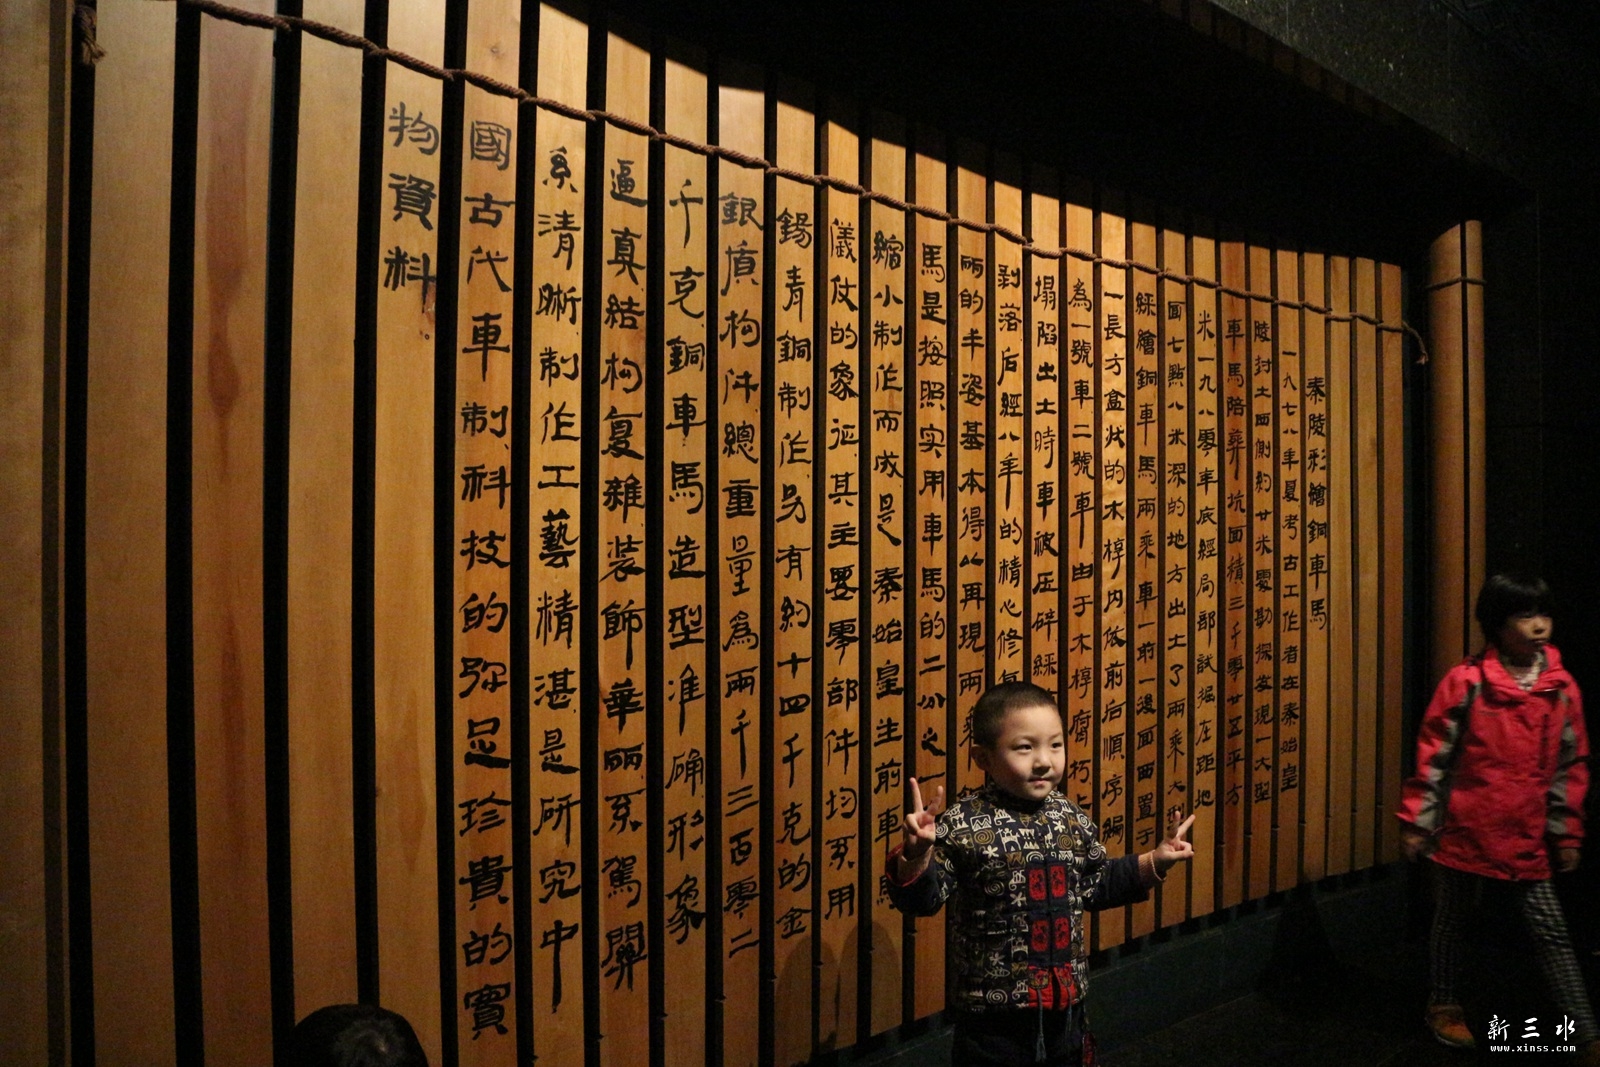 秦陵彩繪銅車馬
一九七八年夏考古工作者在秦始皇
陵封土西側約廿米處勘探發現一大型
車馬陪葬坑面積三千零廿五平方
米一九八零年底經局部試掘在距地
面七點八米深的地方出土了兩乘大型
綵繪銅車馬兩乘車一前一後面西置于
一長方盒狀的木椁內依前后順序編
為一號車二號車由于木椁腐朽
塌陷出土時車被压碎綵
剥落后經八年的精心修
丽的丰姿基本得以再現兩乘
馬是按照实用車馬的二分之一
縮小制作而成是秦始皇生前車馬
儀仗的象征其主要零部件均系用
錫青銅制作另有約十四千克的金
銀質构件總重量爲兩千三百零二
千克銅車馬造型准确形象
逼真結构复雜装飾華丽系駕關
系清晰制作工藝精湛是研究中
國古代車制科技的弥足珍貴的實
物資料。
新三水
www.xinss.com